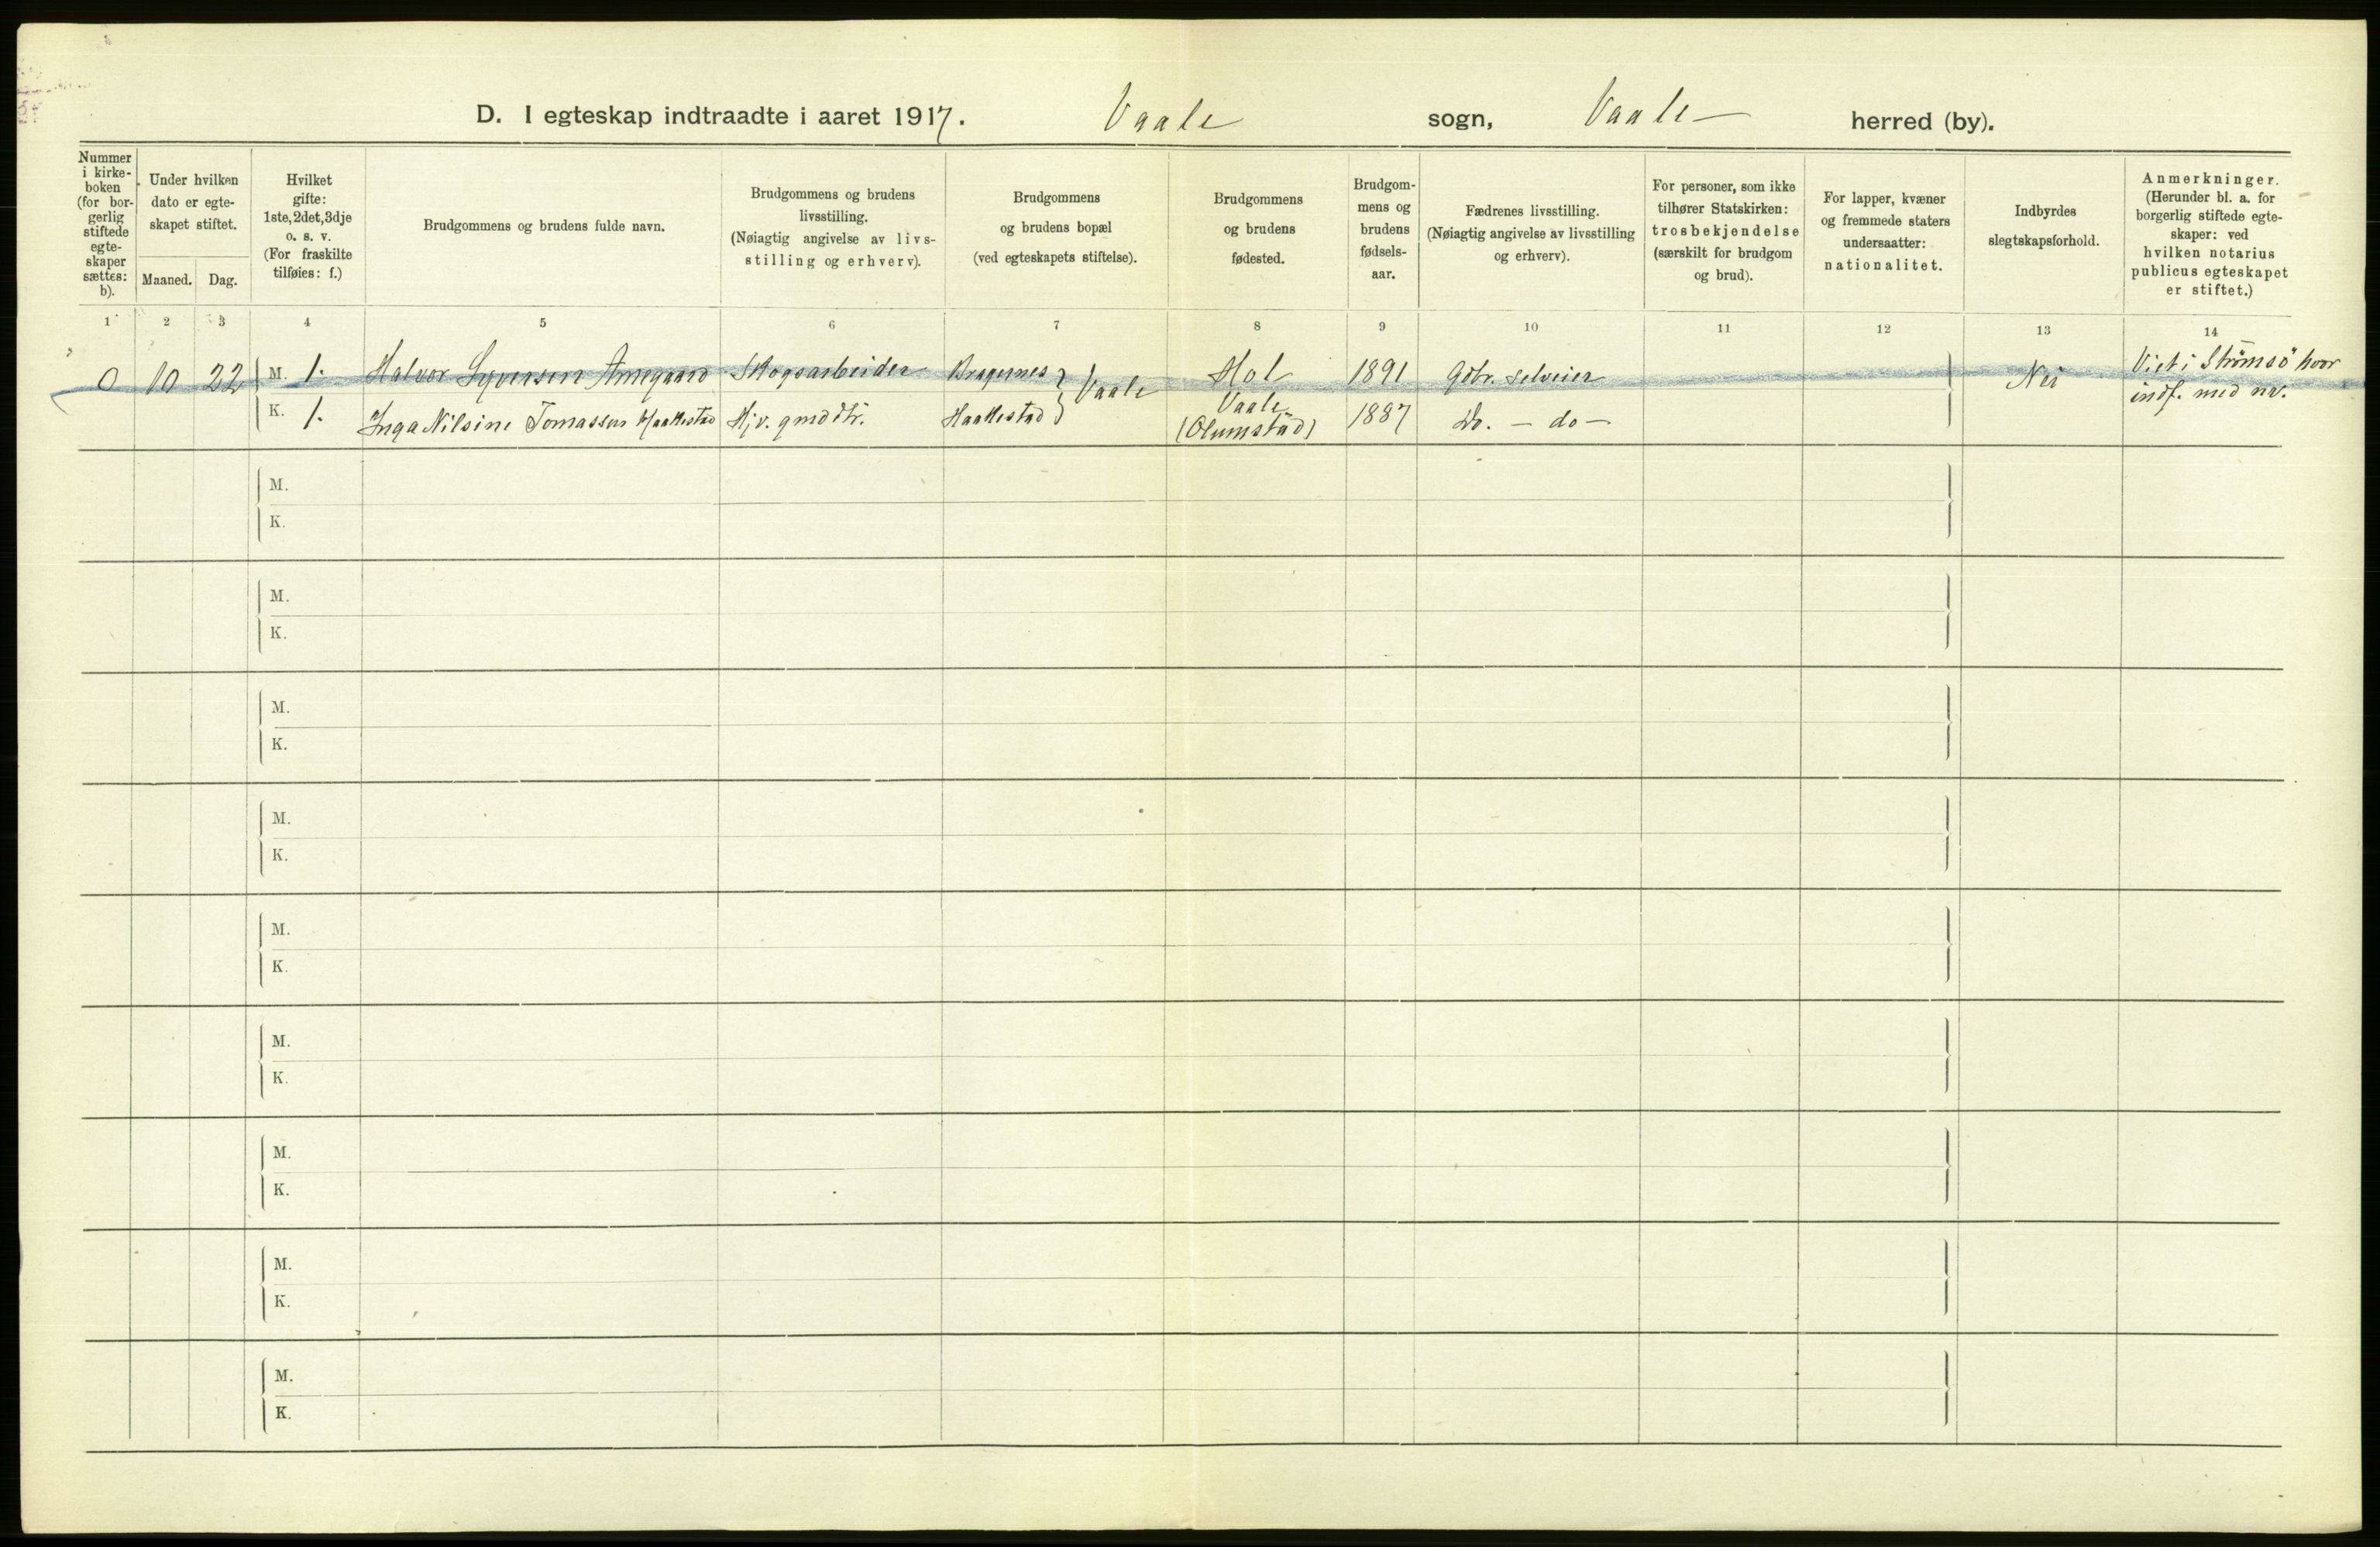 D. I egteskap indtraadte i aaret 1917. Vaale sogn, Vaale herred (by).
Nummer
i kirke-
boken
(for bor-
gerlig
stiftede
egte-
skaper
sættes:
b).
Under hvilken
dato er egte-
skapet stiftet.
Maaned. Dag.
Hvilket
gifte:
1ste, 2det, 3dje
o. s. v.
(For fraskilte
tilføies: f.)
Brudgommens og brudens fulde navn.
Brudgommens og brudens
livsstilling.
(Nøiagtig angivelse av livs-
stilling og erhverv).
Brudgommens
og brudens bopæl
(ved egteskapets stiftelse).
Brudgommens
og brudens
fødested.
Brudgom-
mens og
brudens
fødsels-
aar.
Fædrenes livsstilling.
(Nøiagtig angivelse av livsstilling
og erhverv).
For personer, som ikke
tilhører Statskirken:
trosbekjendelse
(særskilt for brudgom
og brud).
For lapper, kvæner
og fremmede staters
undersaatter:
nationalitet.
Indbyrdes
slegtskapsforhold.
Anmerkninger.
(Herunder bl. a. for
borgerlig stiftede egte-
skaper: ved
hvilken notarius
publicus egteskapet
er stiftet.)
1 2 3 4 5 6 7 8 9 10 11 12 13 14
0 10 22 M. 1. Halvor Syversen Skogsarbeider Bragernes } Vaale Hol 1891 Gbr. selveier Nei Viet i Strömsö hvor
indf. med nr.
K. 1. Inga Nilsine Tomassen Haakestad Hjv. gmddtr. Haakestad Vaale 1887 Do. - do -
(Olumstad)
M.
K.
M.
K.
M.
K.
M.
K.
M.
K.
M.
K.
M.
K.
M.
K.
M.
K.